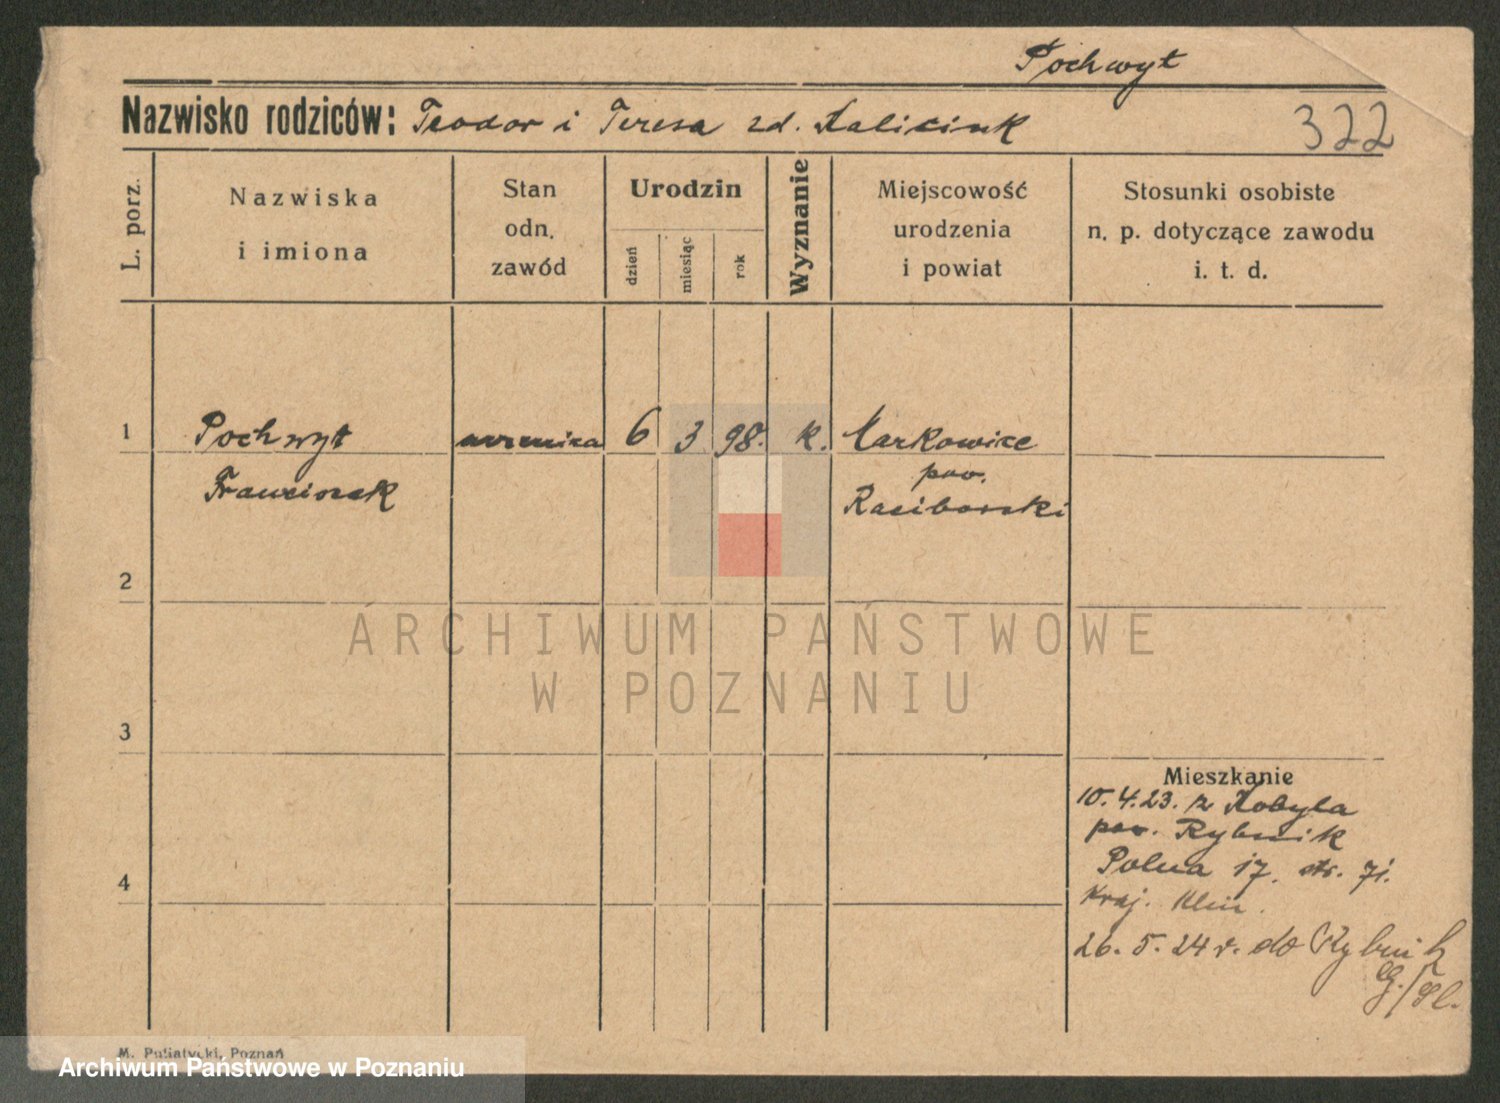 Pochwyt
Nazwisko rodziców: Teodor i Teresa zd.
322
L. porz.
Nazwiska
i imiona
Stan
odn.
zawód
Urodzin
dzień
miesiąc
rok
Wyznanie
Miejscowość
urodzenia
i powiat
Stosunki osobiste
n. p. dotyczące zawodu
i. t. d.
1
Pochwyt
Franciszek
6
3
98.
k.
Markowice
pow.
Raciborski
2
3
4
ARCHIWUM PAŃSTWOWE
W POZNANIU
Mieszkanie
10. 4. 23. z Kobyla
pow. Rybnik
Polna 17.
26. 5. 24 r. do Rybnik
M. Putiatycki, Poznań
Archiwum Państwowe w Poznaniu